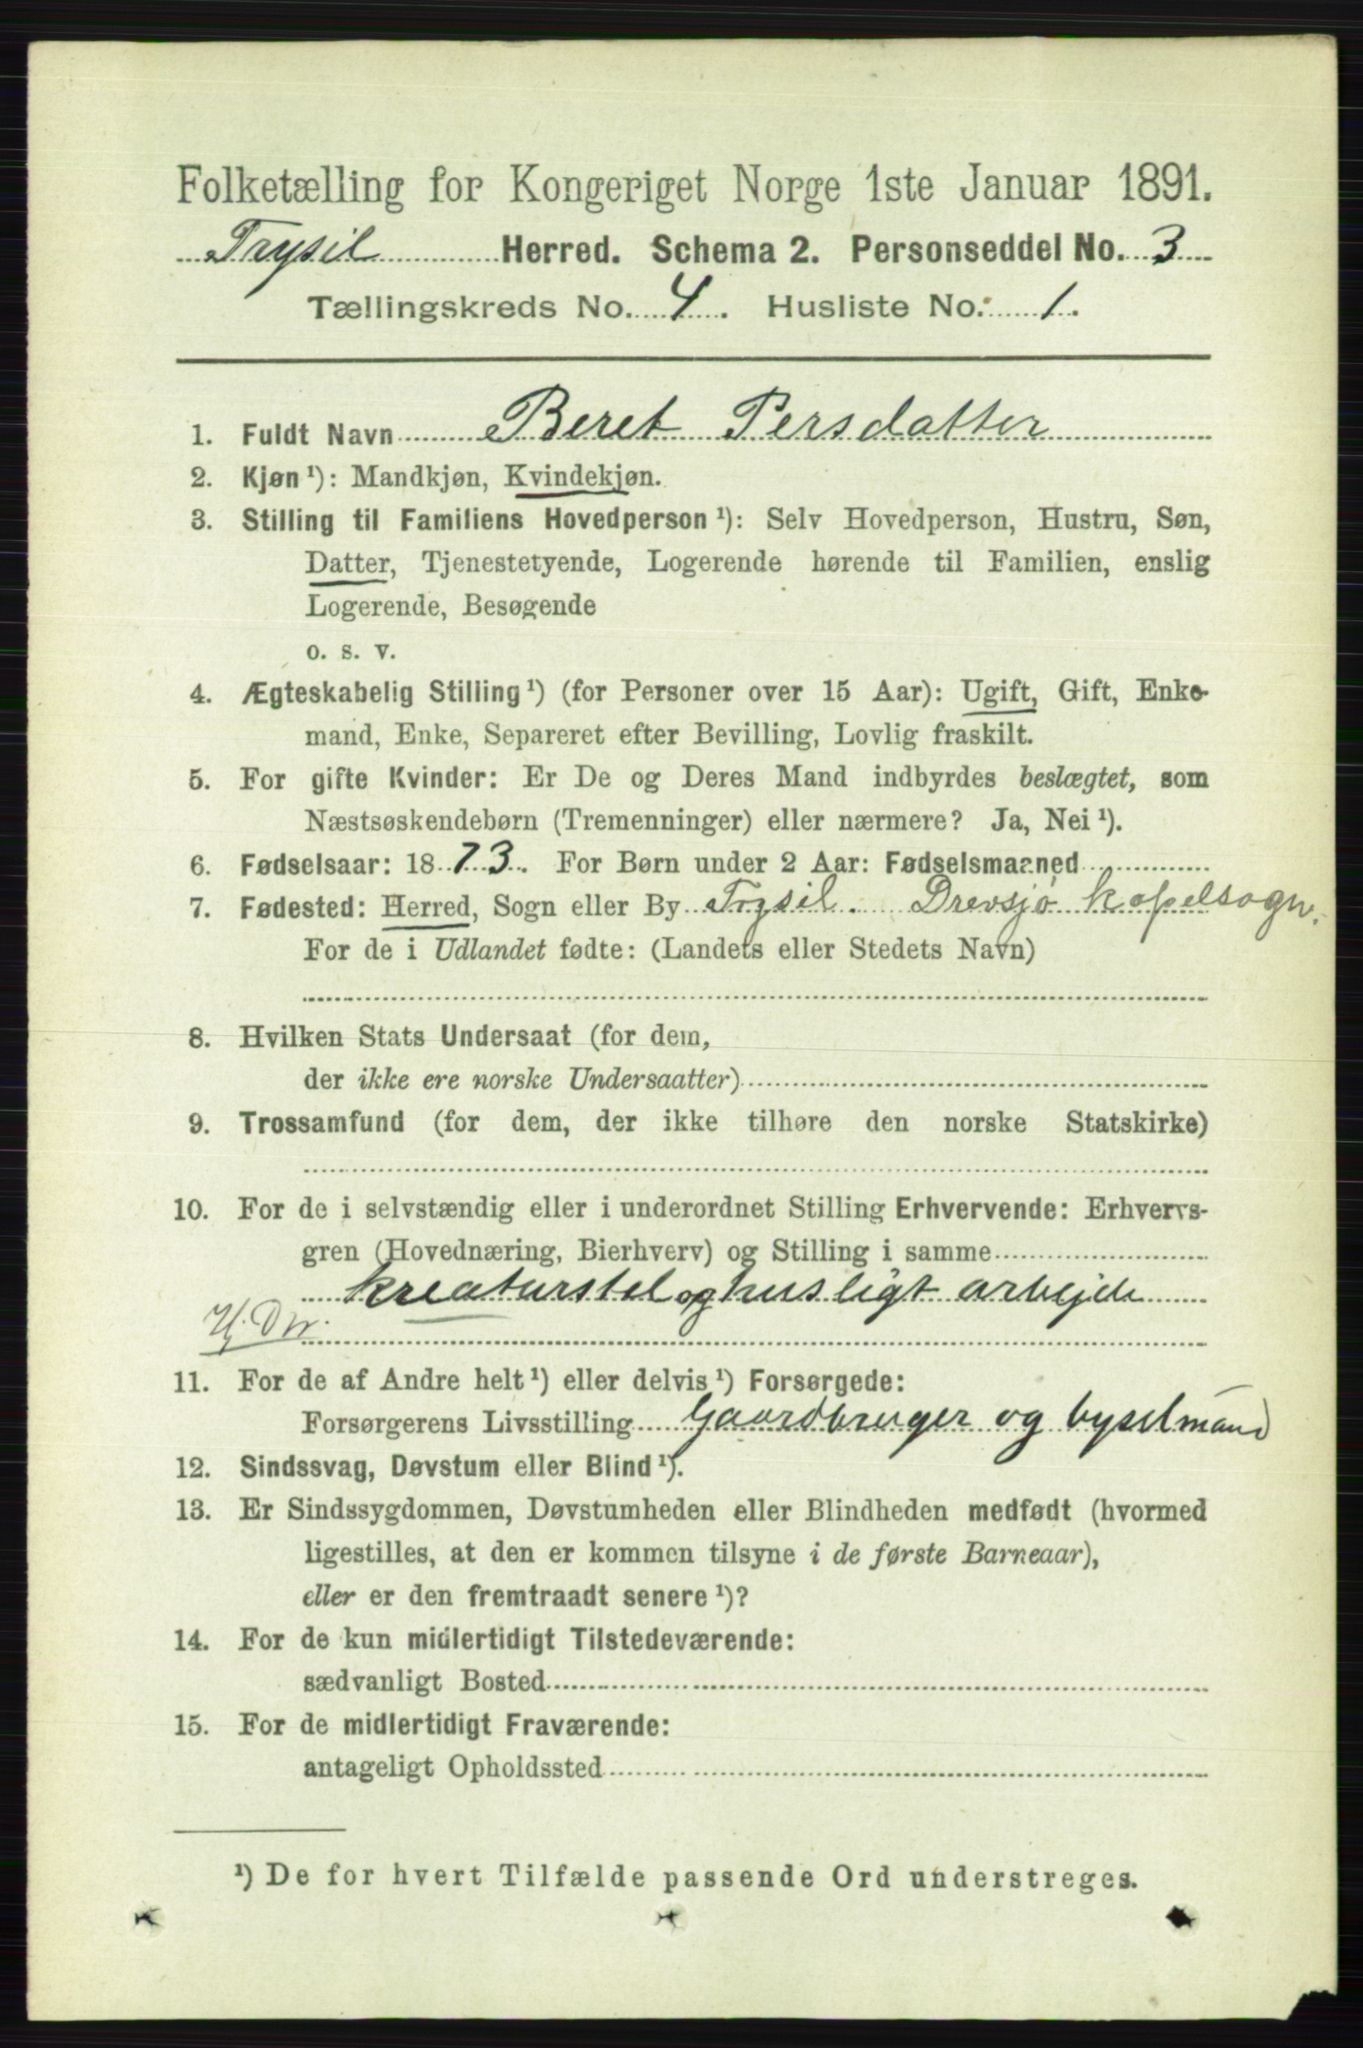 Folketælling for Kongeriget Norge 1ste Januar 1891.
Trysil Herred. Schema 2. Personseddel No. 3
Tællingskreds No. 4. Husliste No. 1.
1. Fuldt Navn Beret Persdatter
2. Kjøn ¹): Mandkjøn, Kvindekjøn.
3. Stilling til Familiens Hovedperson ¹): Selv Hovedperson, Hustru, Søn,
Datter, Tjenestetyende, Logerende hørende til Familien, enslig
Logerende, Besøgende
o. s. v.
4. Ægteskabelig Stilling ¹) (for Personer over 15 Aar): Ugift, Gift, Enke-
mand, Enke, Separeret efter Bevilling, Lovlig fraskilt.
5. For gifte Kvinder: Er De og Deres Mand indbyrdes beslægtet, som
Næstsøskendebørn (Tremenninger) eller nærmere? Ja, Nei ¹).
6. Fødselsaar: 1873. For Børn under 2 Aar: Fødselsmaaned
7. Fødested: Herred, Sogn eller By Trysil. Drevsjø kapelsogn.
For de i Udlandet fødte: (Landets eller Stedets Navn)
8. Hvilken Stats Undersaat (for dem,
der ikke ere norske Undersaatter)
9. Trossamfund (for dem, der ikke tilhøre den norske Statskirke)
10. For de i selvstændig eller i underordnet Stilling Erhvervende: Erhvervs-
gren (Hovednæring, Bierhverv) og Stilling i samme
kreaturstel og husligt arbejde
11. For de af Andre helt ¹) eller delvis ¹) Forsørgede:
Forsørgerens Livsstilling Gaardbruger og bygselmand
12. Sindssvag, Døvstum eller Blind ¹).
13. Er Sindssygdommen, Døvstumheden eller Blindheden medfødt (hvormed
ligestilles, at den er kommen tilsyne i de første Barneaar),
eller er den fremtraadt senere ¹)?
14. For de kun midlertidigt Tilstedeværende:
sædvanligt Bosted
15. For de midlertidigt Fraværende:
antageligt Opholdssted
¹) De for hvert Tilfælde passende Ord understreges.